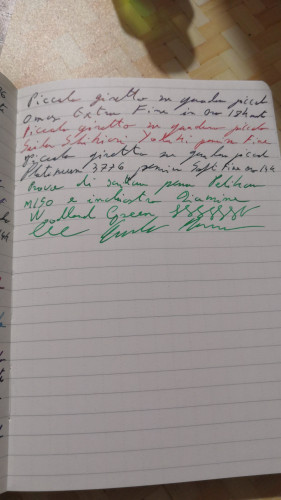 Piccolo giretto su quaderno piccolo
Omas Extra Fine in oro 18 kat
Piccolo giretto su quaderno piccolo
Sailor Shikiori Fine
Piccolo giretto su quaderno piccolo
Platinum 3776 pennino Soft Fine
Prove di scrittura penna Pelikan
M150 e inchiostro Diamine
Woodland Green